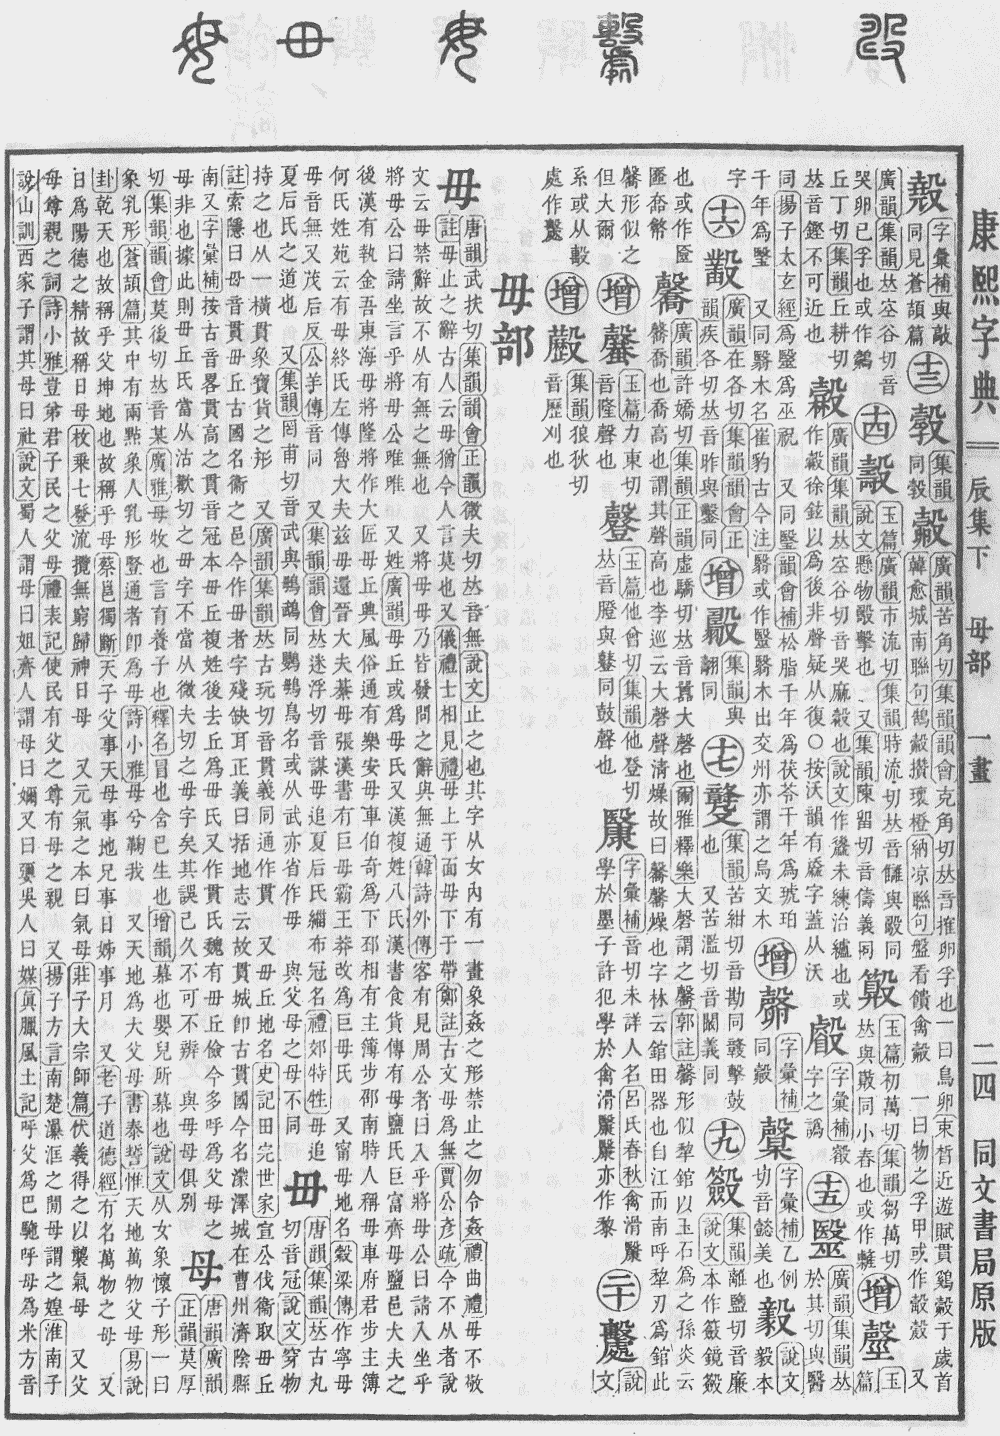 康熙字典
辰集下
毋部
一畫
二四
同文書局原版
㲉
字彙補與敲
同見蒼頡篇
十三
㲄
集韻
同㲄
㲉
廣韻苦角切集韻韻會克角切𠀤音搉卵孚也一曰鳥卵束晳近遊賦貫鷄㲉于歲首
韓愈城南聯句鵠㲉攢瓌橙納凉聯句盤看饋禽㲉 一曰物之孚甲或作㱿 又
廣韻集韻𠀤空谷切音
哭卵已孚也或作
十四
玉篇廣韻市流切集韻時流切𠀤音讎與㱾同
說文懸物㱾擊也 又集韻陳留切音儔義同
玉篇初萬切集韻芻萬切
𠀤與同小舂也或作
增
玉
篇
丘丁切集韻丘耕切
𠀤音鏗不可近也
廣韻集韻𠀤空谷切音哭麻㲄也說文作未練治纑也或
作徐鉉以爲後非聲疑从復○按沃韻有字蓋从沃
字彙補
字之譌
十五
毉
廣韻集韻𠀤
於其切與醫
同揚子太玄經爲毉爲巫祝 又同䃜韻會補松脂千年爲茯苓千年爲琥珀
千年爲䃜 又同木名崔豹古今注或作木出交州亦謂之烏文木
增
字彙補
同㲉
字彙補乙例
切音懿美也
毅
說文
毅本
字
十六
廣韻在各切集韻韻會正
韻疾各切𠀤音昨與鑿同
增
集韻與
翻同
十七
集韻苦紺切音勘同贛擊鼓
也 又苦濫切音闞義同
十九
集韻離鹽切音廉
說文本作籢鏡籢
也或作匳
匲奩帘
廣韻許嬌切集韻正韻虛驕切𠀤音囂大磬也爾雅釋樂大磬謂之郭註形似犂錧以玉石爲之孫炎云
喬也喬高也謂其聲高也李巡云大磬聲清燥故曰燥也字林云錧田器也自江而南呼犂刃爲錧此
形似之
但大爾
增
玉篇力東切
音隆聲也
玉篇他會切集韻他登切
𠀤音膯與同鼓聲也
字彙補音切未詳人名呂氏春秋禽滑
學於墨子許犯學於禽滑亦作黎
二十
說
文
系或从毄
處作
增
集韻狼狄切
音歷刈也
毋部
毋
唐韻武扶切集韻韻會正韻微夫切𠀤音無說文止之也其字从女內有一畫象姦之形禁止之勿令姦禮曲禮毋不敬
註毋止之辭古人云毋猶今人言莫也又儀禮士相見禮毋上于面毋下于帶鄭註古文毋爲無賈公彥疏今不从者說
文云毋禁辭故不从有無之無也 又將毋毋乃皆發問之辭與無通韓詩外傳客有見周公者曰入乎將毋公曰請入坐乎
將毋公曰請坐言乎將毋公唯唯 又姓廣韻毋丘或爲毋氏又漢複姓八氏漢書食貨傳有毋鹽氏巨富齊毋鹽邑大夫之
後漢有執金吾東海毋將隆將作大匠毋丘興風俗通有樂安毋車伯奇爲下邳相有主簿步邵南時人稱毋車府君步主簿
何氏姓苑云有毋終氏左傳魯大夫茲毋還晉大夫綦毋張漢書有巨毋霸王莽改爲巨毋氏 又甯毋地名穀梁傳作寧毋
毋音無又茂后反公羊傳音同 又集韻韻會𠀤迷浮切音謀毋追夏后氏緇布冠名禮郊特牲毋追
夏后氏之道也 又集韻罔甫切音武與鵡䳇同鸚䳇鳥名或从武亦省作毋 與父母之母不同
毌
唐韻集韻𠀤古丸
切音冠說文穿物
持之也从一橫貫象寶貨之形 又廣韻集韻𠀤古玩切音貫義同通作貫 又毌丘地名史記田完世家宣公伐衞取毌丘
註索隱曰毌音貫毌丘古國名衞之邑今作毌者字殘缺耳正義曰括地志云故貫城卽古貫國今名濛澤城在曹州濟陰縣
南又字彙補按古音畧貫高之貫音冠本毌丘複姓後去丘爲毌氏又作貫氏魏有毌丘儉今多呼爲父母之
母非也據此則毌丘氏當从沽歡切之毌字不當从微夫切之毋字矣其誤已久不可不辨 與毋母俱別
母
唐韻廣韻
正韻莫厚
切集韻韻會莫後切𠀤音某廣雅母牧也言育養子也釋名冒也含已生也增韻慕也嬰兒所慕也說文从女象懷子形一曰
象乳形蒼頡篇其中有兩點象人乳形豎通者卽爲毋詩小雅母兮鞠我 又天地爲大父母書泰誓惟天地萬物父母易說
卦乾天也故稱乎父坤地也故稱乎母蔡邕獨斷天子父事天母事地兄事日姊事月 又老子道德經有名萬物之母 又
日爲陽德之精故稱日母枚乗七發流攬無窮歸神日母 又元氣之本曰氣母莊子大宗師篇伏羲得之以襲氣母 又父
母尊親之詞詩小雅豈弟君子民之父母禮表記使民有父之尊有母之親 又揚子方言南楚瀑洭之閒母謂之媓淮南子
說山訓西家子謂其母曰社說文蜀人謂母曰姐齊人謂母曰嬭又曰㜷吳人曰媒眞臘風土記呼父爲巴馳呼母爲米方音